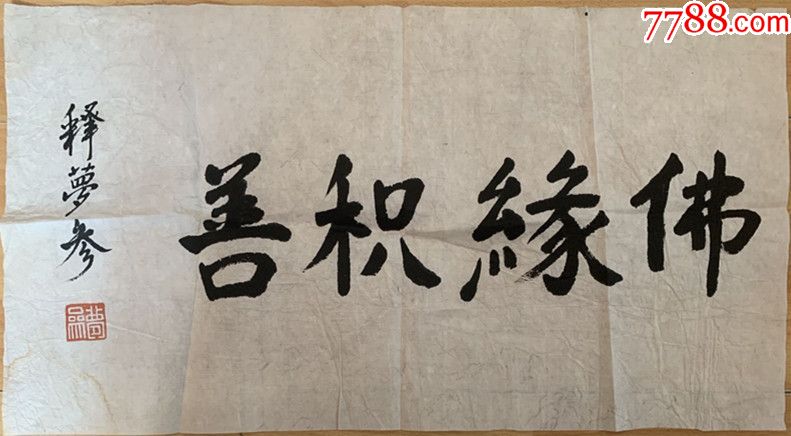 7788.com
佛緣积善
释夢参